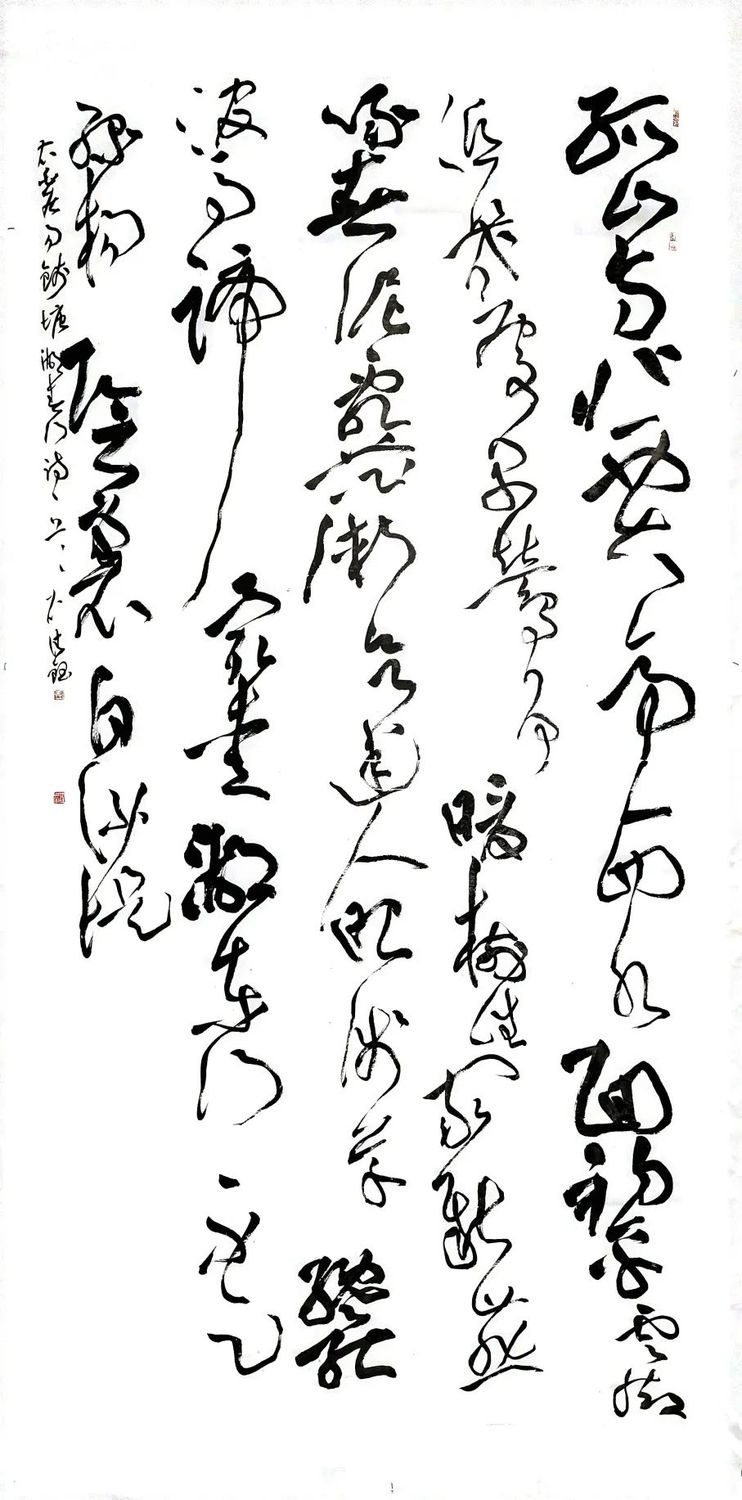 孤山寺北賈亭西水面初平雲腳
低幾處早鶯爭暖樹誰家新燕
啄春泥亂花漸欲迷人眼淺草纔能
沒馬蹄最愛湖東行不足
綠楊陰裏白沙堤
白居易錢塘湖春行詩